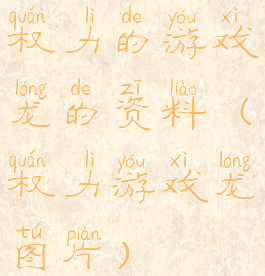 quán lì de yóu xì
权力的游戏
lóng de zī liào
龙的资料（
quán lì yóu xì lóng
权力游戏龙
tú piàn
图片）